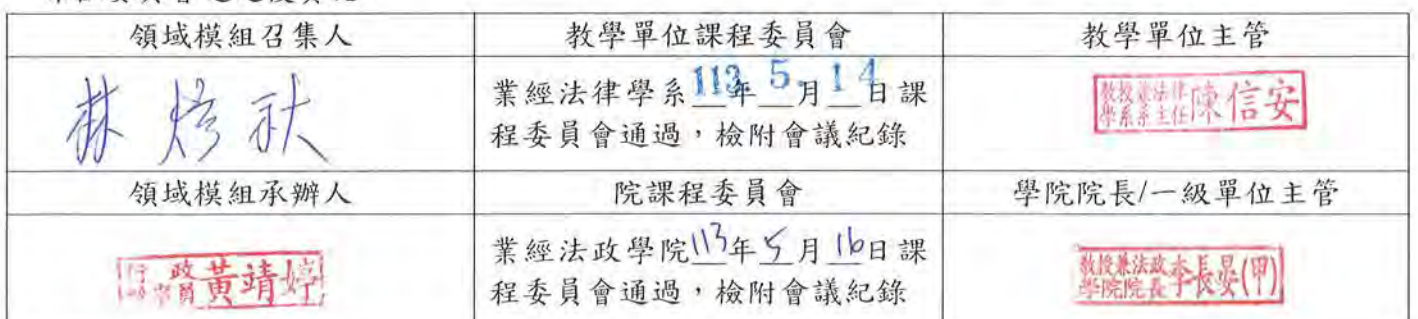 領域模組召集人
教學單位課程委員會
教學單位主管
林 秋
業經法律學系113年5月14日課
程委員會通過,檢附會議紀錄
教授兼法律
學系系主任
陳信安
領域模組承辦人
院課程委員會
學院院長/一級單位主管
政
員
黃靖婷
業經法政學院113年5月16日課
程委員會通過,檢附會議紀錄
教授兼法政
學院院長
李長晏(甲)